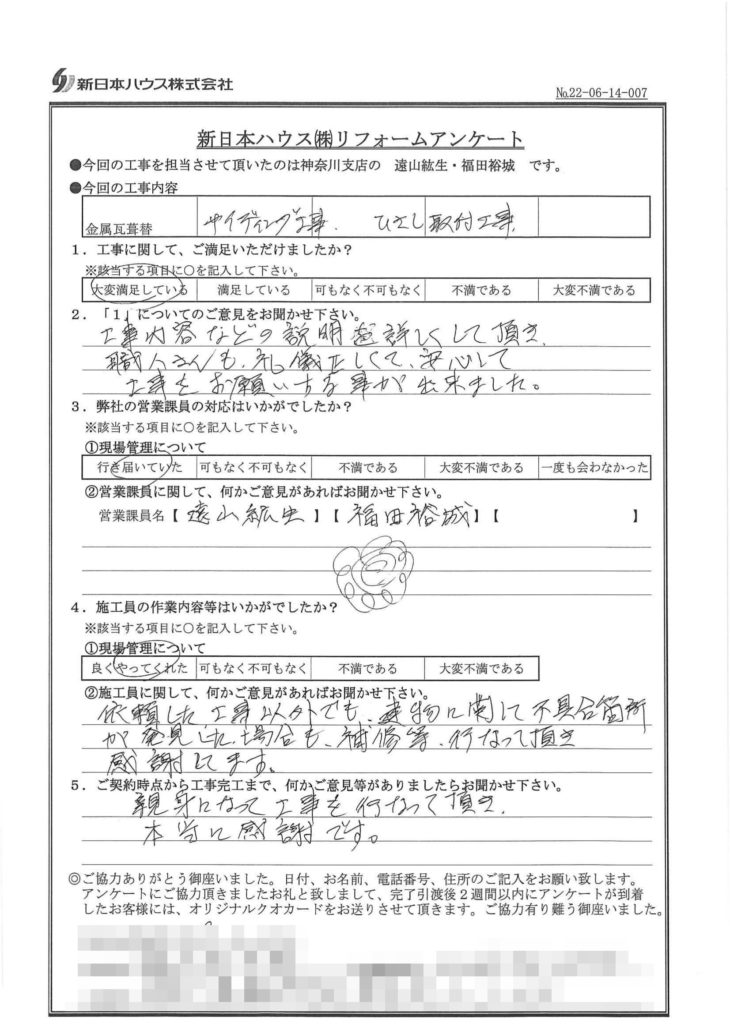 新日本ハウス株式会社
№22-06-14-007
新日本ハウス㈱リフォームアンケート
●今回の工事を担当させて頂いたのは神奈川支店の 遠山紘生・福田裕城 です。
●今回の工事内容
金属瓦葺替 サイディング工事. ひさし取付工事
1．工事に関して、ご満足いただけましたか？
※該当する項目に○を記入して下さい。
大変満足している 満足している 可もなく不可もなく 不満である 大変不満である
2．「1」についてのご意見をお聞かせ下さい。
工事内容などの説明を詳しくして頂き、
職人さんも、礼儀正しくて、安心して
工事をお願いする事が出来ました。
3．弊社の営業課員の対応はいかがでしたか？
※該当する項目に○を記入して下さい。
①現場管理について
行き届いていた 可もなく不可もなく 不満である 大変不満である 一度も会わなかった
②営業課員に関して、何かご意見があればお聞かせ下さい。
営業課員名【 遠山紘生 】【 福田裕城 】【 】
4．施工員の作業内容等はいかがでしたか？
※該当する項目に○を記入して下さい。
①現場管理について
良くやってくれた 可もなく不可もなく 不満である 大変不満である
②施工員に関して、何かご意見があればお聞かせ下さい。
依頼した工事以外でも、建物に関して不具合箇所
が発見した場合も、補修等、行なって頂き
感謝してます。
5．ご契約時点から工事完工まで、何かご意見等がありましたらお聞かせ下さい。
親身になって工事を行なって頂き、
本当に感謝です。
◎ご協力ありがとう御座いました。日付、お名前、電話番号、住所のご記入をお願い致します。
アンケートにご協力頂きましたお礼と致しまして、完了引渡後2週間以内にアンケートが到着
したお客様には、オリジナルクオカードをお送りさせて頂きます。ご協力有り難う御座いました。